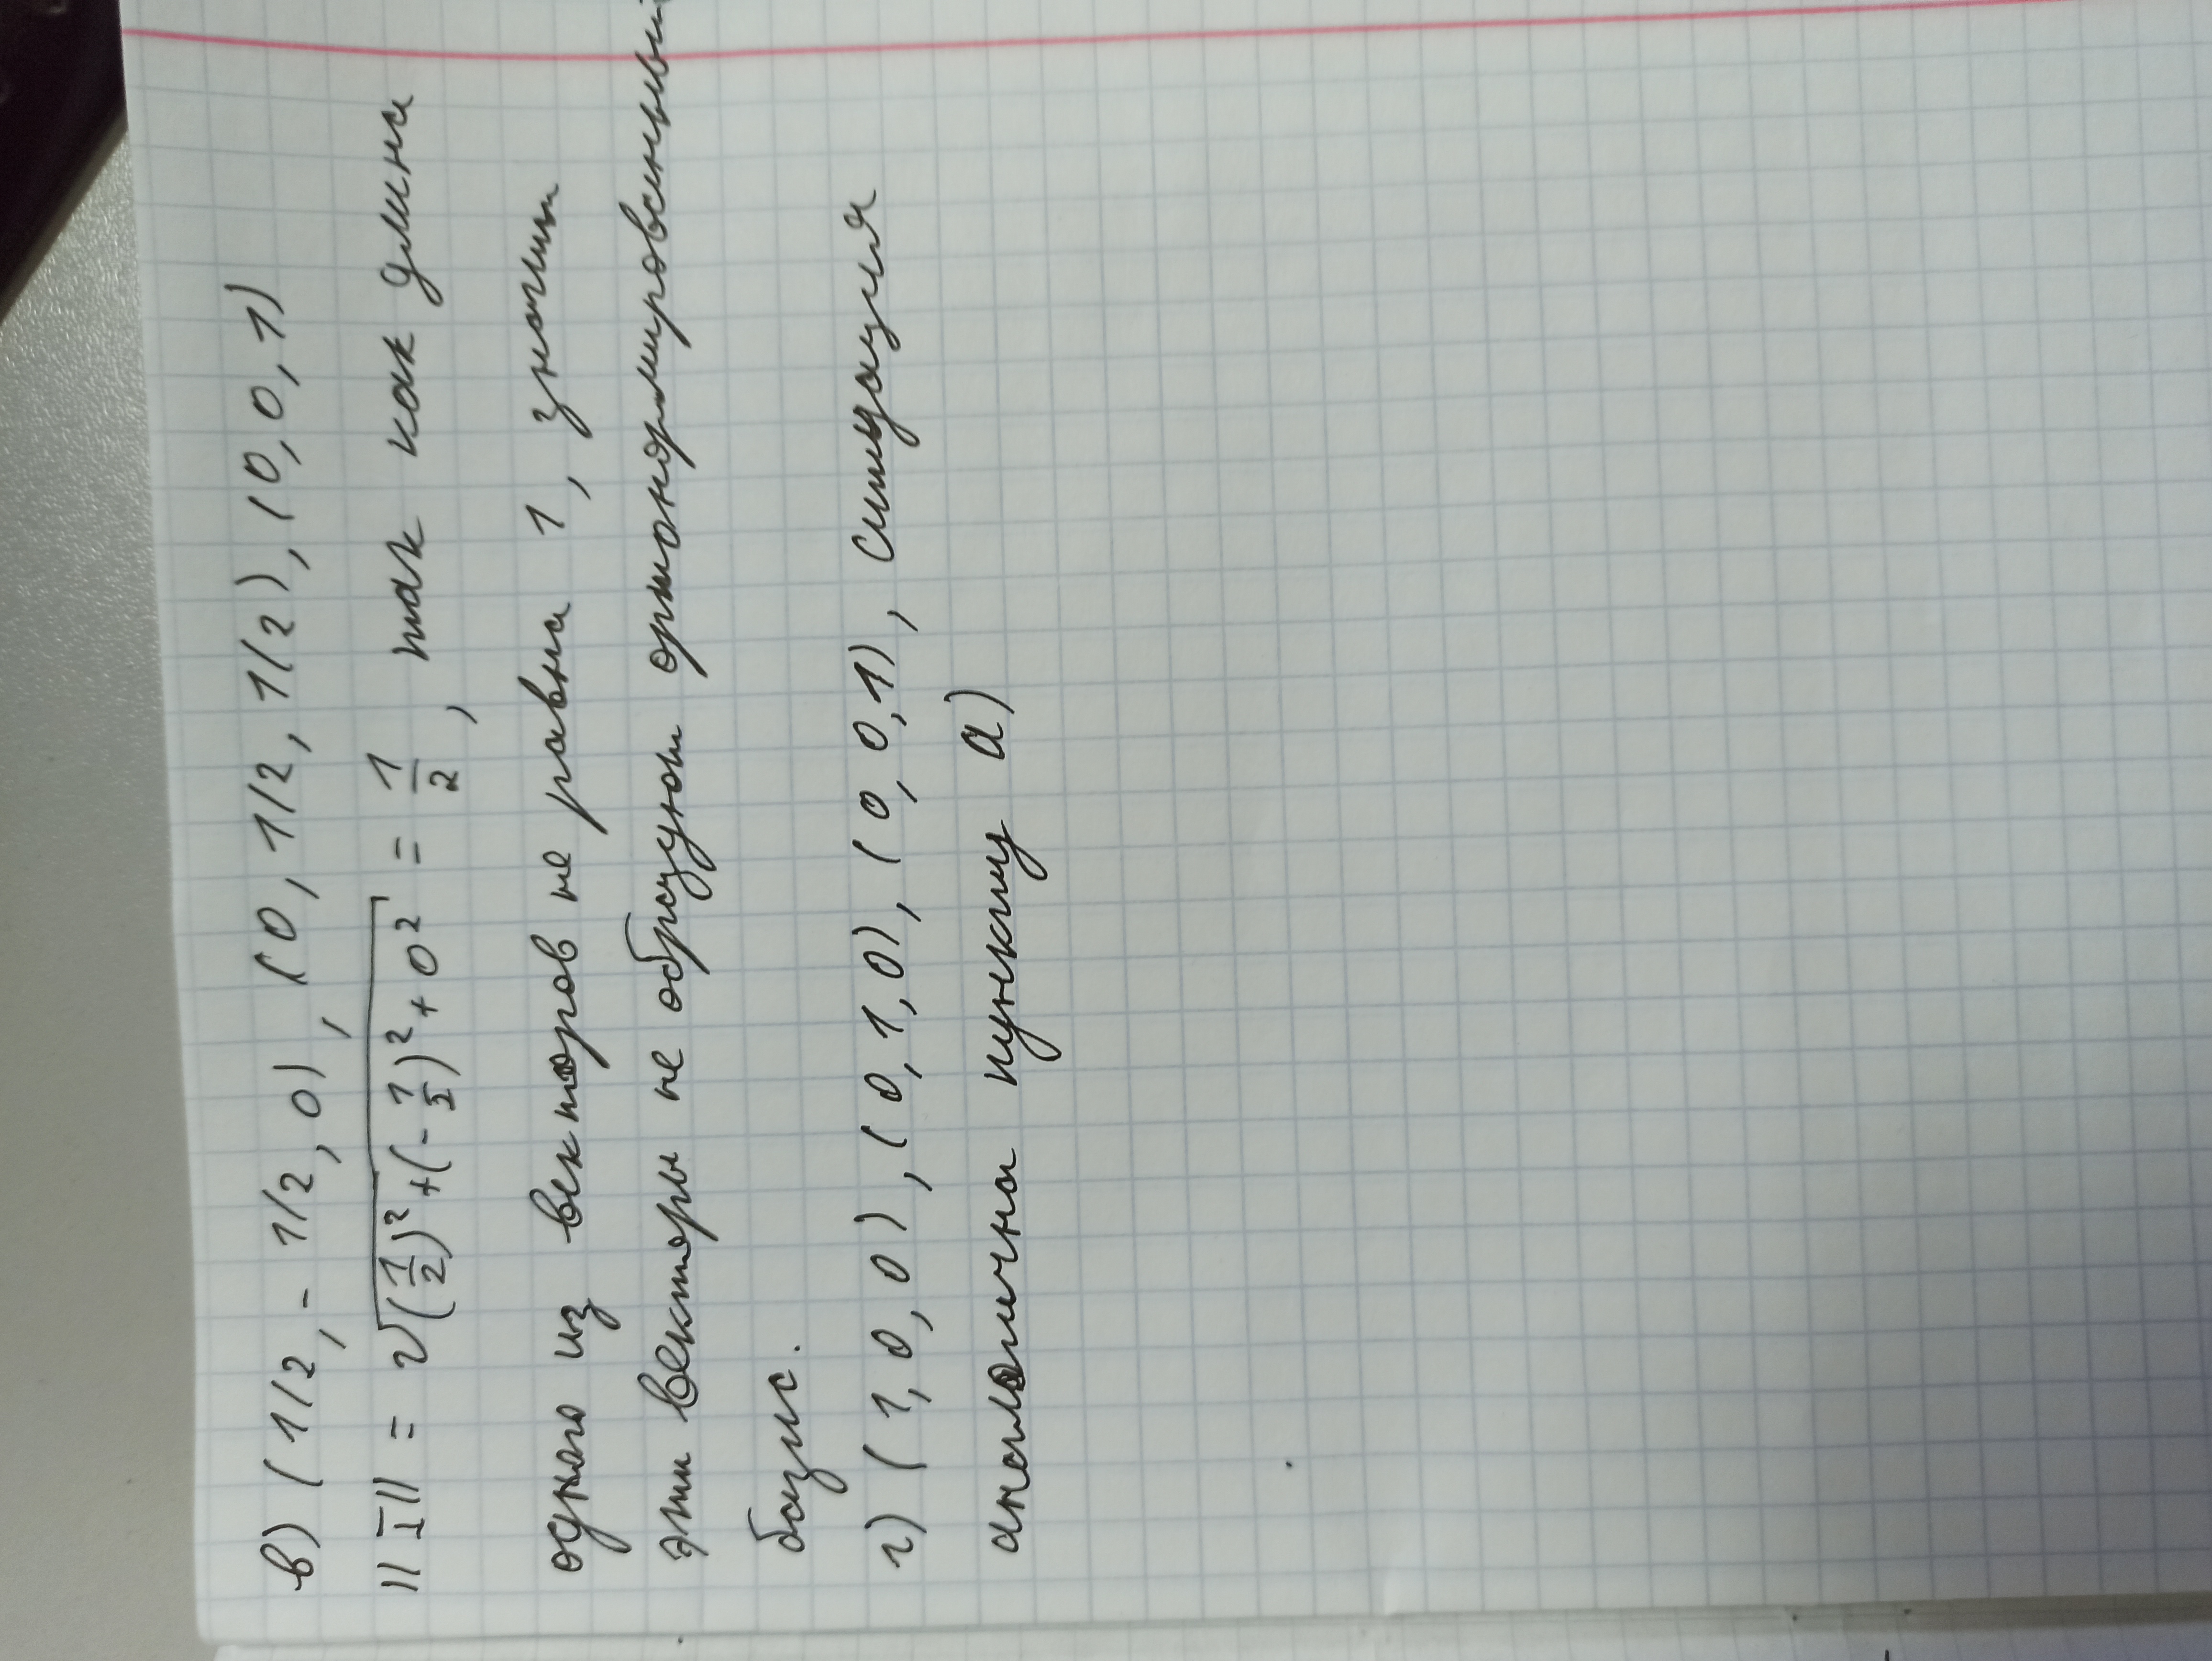 в) (1/2, - 1/2, 0), (0, 1/2, 1/2), (0, 0, 1)
||I|| = √((1/2)² + (-1/2)² + 0²) = 1/2, так как длина
одного из векторов не равна 1, значит
эти векторы не образуют ортонормированный
базис.
г) (1, 0, 0), (0, 1, 0), (0, 0, 1), ситуация
аналогична пункту а)